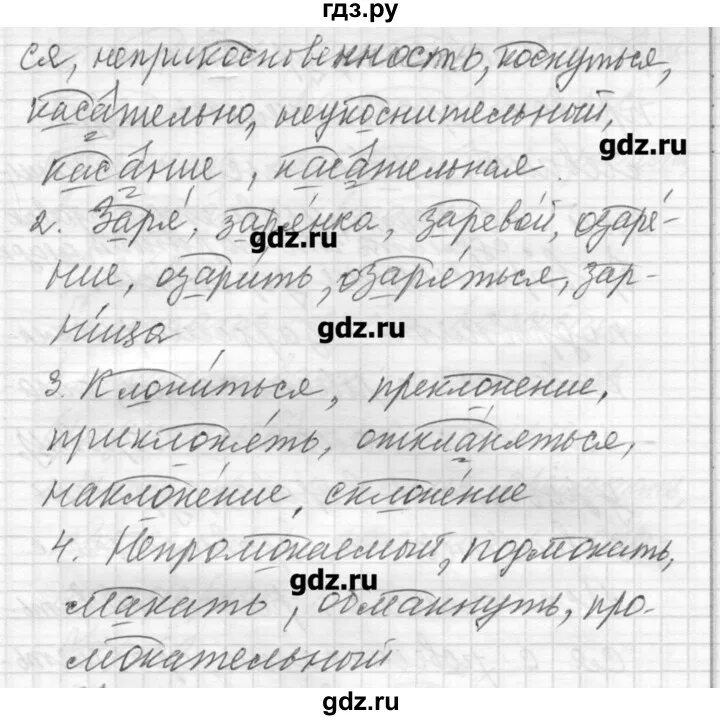 гдз.ру
ся, неприкосновенность, коснуться,
касательно, неукоснительный,
gdz.ru
каса́ние, касательная.
2. Заря́, заря́нка, заревой, озаре́-
gdz.ru
ние, озари́ть, озаря́ться, зар-
ни́ца
gdz.ru
3. Клони́ться, преклонение,
приклоня́ть, откла́няться,
наклоне́ние, склоне́ние
4. Непромокаемый, подмокать,
gdz.ru
макать, обмакнуть, про-
мокательный
gdz.ru